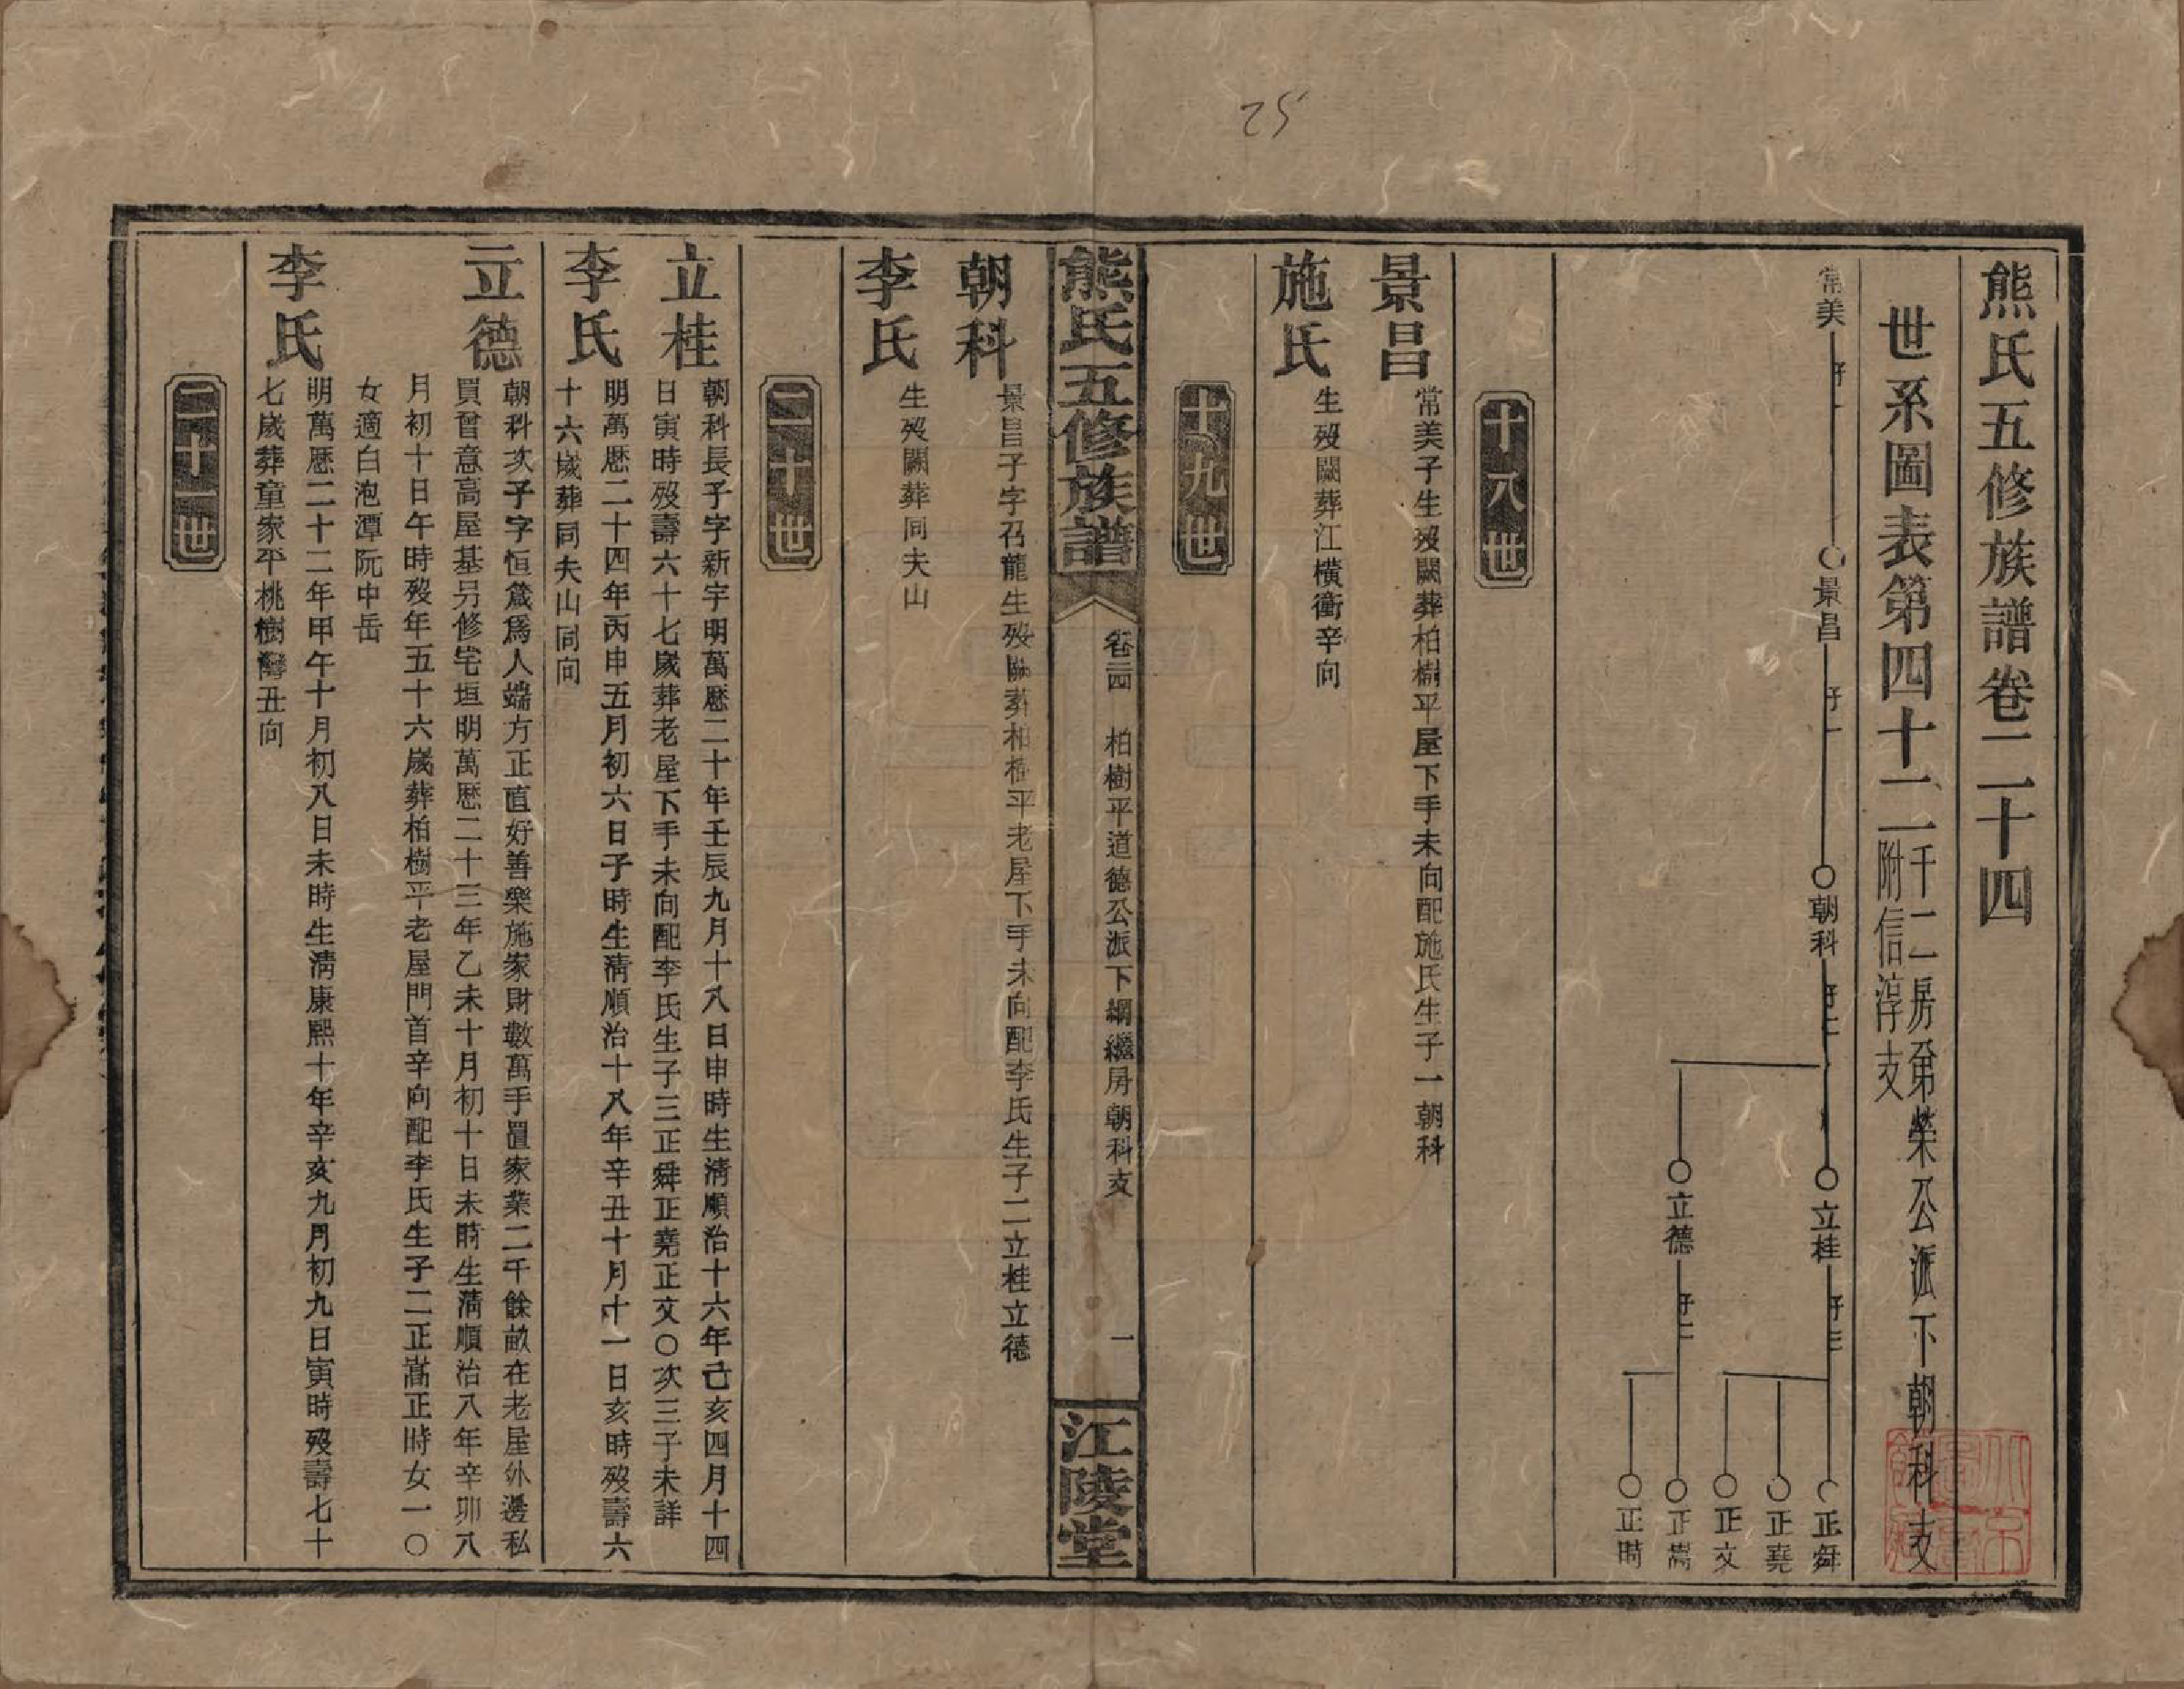 25
熊氏五修族譜卷二十四
世系圖表第四十二
千二房第榮公派下朝科支
附信淳支
常美
子一
景昌
子一
朝科
子二
立桂
子三
立德
子二
正舜
正堯
正文
正嵩
正時
十八世
景昌
常美子生歿闕葬柏樹平屋下手未向配施氏生子一朝科
施氏
生歿闕葬江橫衝辛向
十九世
熊氏五修族譜
卷二四
柏樹平道德公派下綱繼房朝科支
一
江陵堂
朝科
景昌子字召龍生歿闕葬柏樹平老屋下手未向配李氏生子二立桂立德
李氏
生歿闕葬同夫山
二十世
立桂
朝科長子字新宇明萬歷二十年壬辰九月十八日申時生清順治十六年己亥四月十四
日寅時歿壽六十七歲葬老屋下手未向配李氏生子三正舜正堯正文○次三子未詳
李氏
明萬歷二十四年丙申五月初六日子時生清順治十八年辛丑十月十一日亥時歿壽六
十六歲葬同夫山同向
立德
朝科次子字恒箴為人端方正直好善樂施家財數萬手置家業二千餘畝在老屋外邊私
買曾意高屋基另修宅垣明萬歷二十三年乙未十月初十日未時生清順治八年辛卯八
月初十日午時歿年五十六歲葬柏樹平老屋門首辛向配李氏生子二正嵩正時女一○
女適白泡潭阮中岳
李氏
明萬歷二十二年甲午十月初八日未時生清康熙十年辛亥九月初九日寅時歿壽七十
七歲葬童家平桃樹灣丑向
二十一世